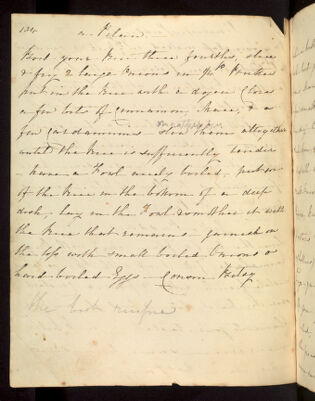 134 a Pilau.
Boil your Rice three fourths, slice
& fry 2 large Onions in Butter
put in the Rice with a dozen Cloves
a few bits of Cinnamon, Mace, & a
few Cardamums stew them altogether
until the Rice is sufficiently tender
- have a Fowl nicely boiled, put some
of the Rice in the bottom of a deep
dish, lay in the Fowl & smother it with
the Rice that remains - garnish on
the top with small boiled Onions or
hard boiled Eggs -
the best receipt